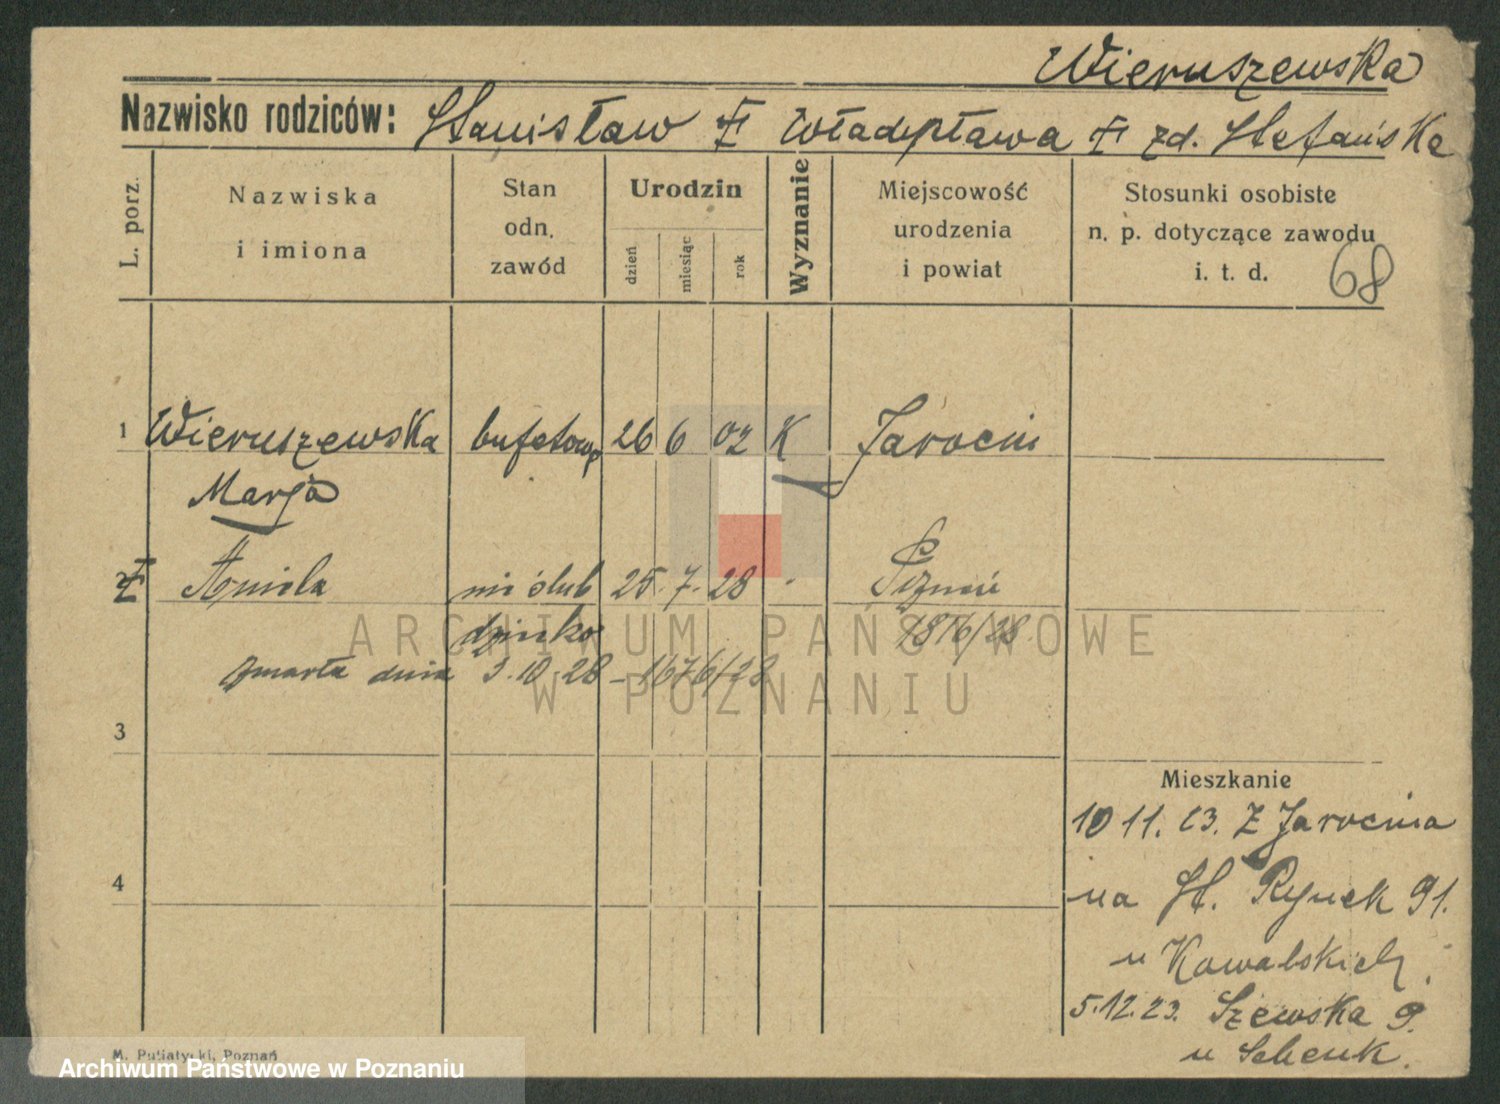 Wieruszewska
Nazwisko rodziców: Stanisław ‡ Władysława ‡ zd. Stefańska
L. porz.
Nazwiska
i imiona
Stan
odn.
zawód
Urodzin
dzień
miesiąc
rok
Wyznanie
Miejscowość
urodzenia
i powiat
Stosunki osobiste
n. p. dotyczące zawodu
i. t. d.
68
1 Wieruszewska bufetowa 26 6 02 K Jarocin
Marja
2 Aniela nieślub 25. 7. 28 Poznań
dziecko 1876/28
zmarła dnia 3.10.28 – 1676/28
3
4
Mieszkanie
10 11. 23. Z Jarocina
na St. Rynek 91.
u Kowalskich.
5.12.23. Szewska 9.
u Schenk.
M. Putiatycki, Poznań
ARCHIWUM PAŃSTWOWE
W POZNANIU
Archiwum Państwowe w Poznaniu